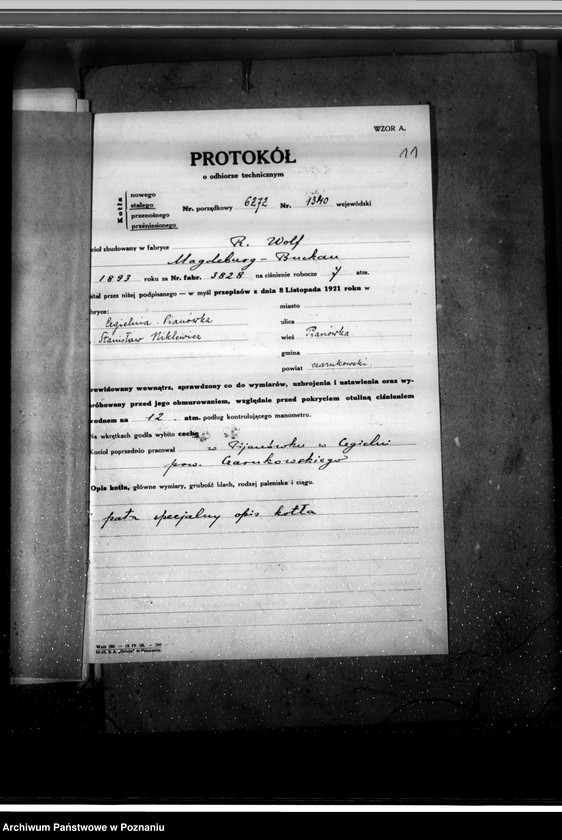 WZOR A.
11
PROTOKÓŁ
o odbiorze technicznym
Kotła
nowego
stałego
przenośnego
przéniesionego
Nr. porządkowy 6272 Nr. 1340 wojewódski
cioł zbudowany w fabryce R. Wolf
Magdeburg - Buckau
1893 roku za Nr. fabr. 3828 na ciśnienie robocze 7 atm.
stał przez niżej podpisanego — w myśl przepisów z dnia 8 Listopada 1921 roku w
bryce:
Cegielnia Pianówka
Stanisław Niklewicz
miasto
ulica
wieś Pianówka
gmina
powiat czarnkowski.
rewidowany wewnątrz, sprawdzony co do wymiarów, uzbrojenia i ustawienia oraz wy-
próbowany przed jego obmurowaniem, względnie przed pokryciem otuliną ciśnieniem
wodnem na 12 . atm. podług kontrolującego manometru.
Na wkrętkach godła wybito cechę
Kocioł poprzednio pracował w Pijanówku w Cegielni
pow. Czarnkowskiego
Opis kotła, główne wymiary, grubość blach, rodzaj paleniska i ciągu.
patrz specjalny opis kotła
Archiwum Państwowe w Poznaniu